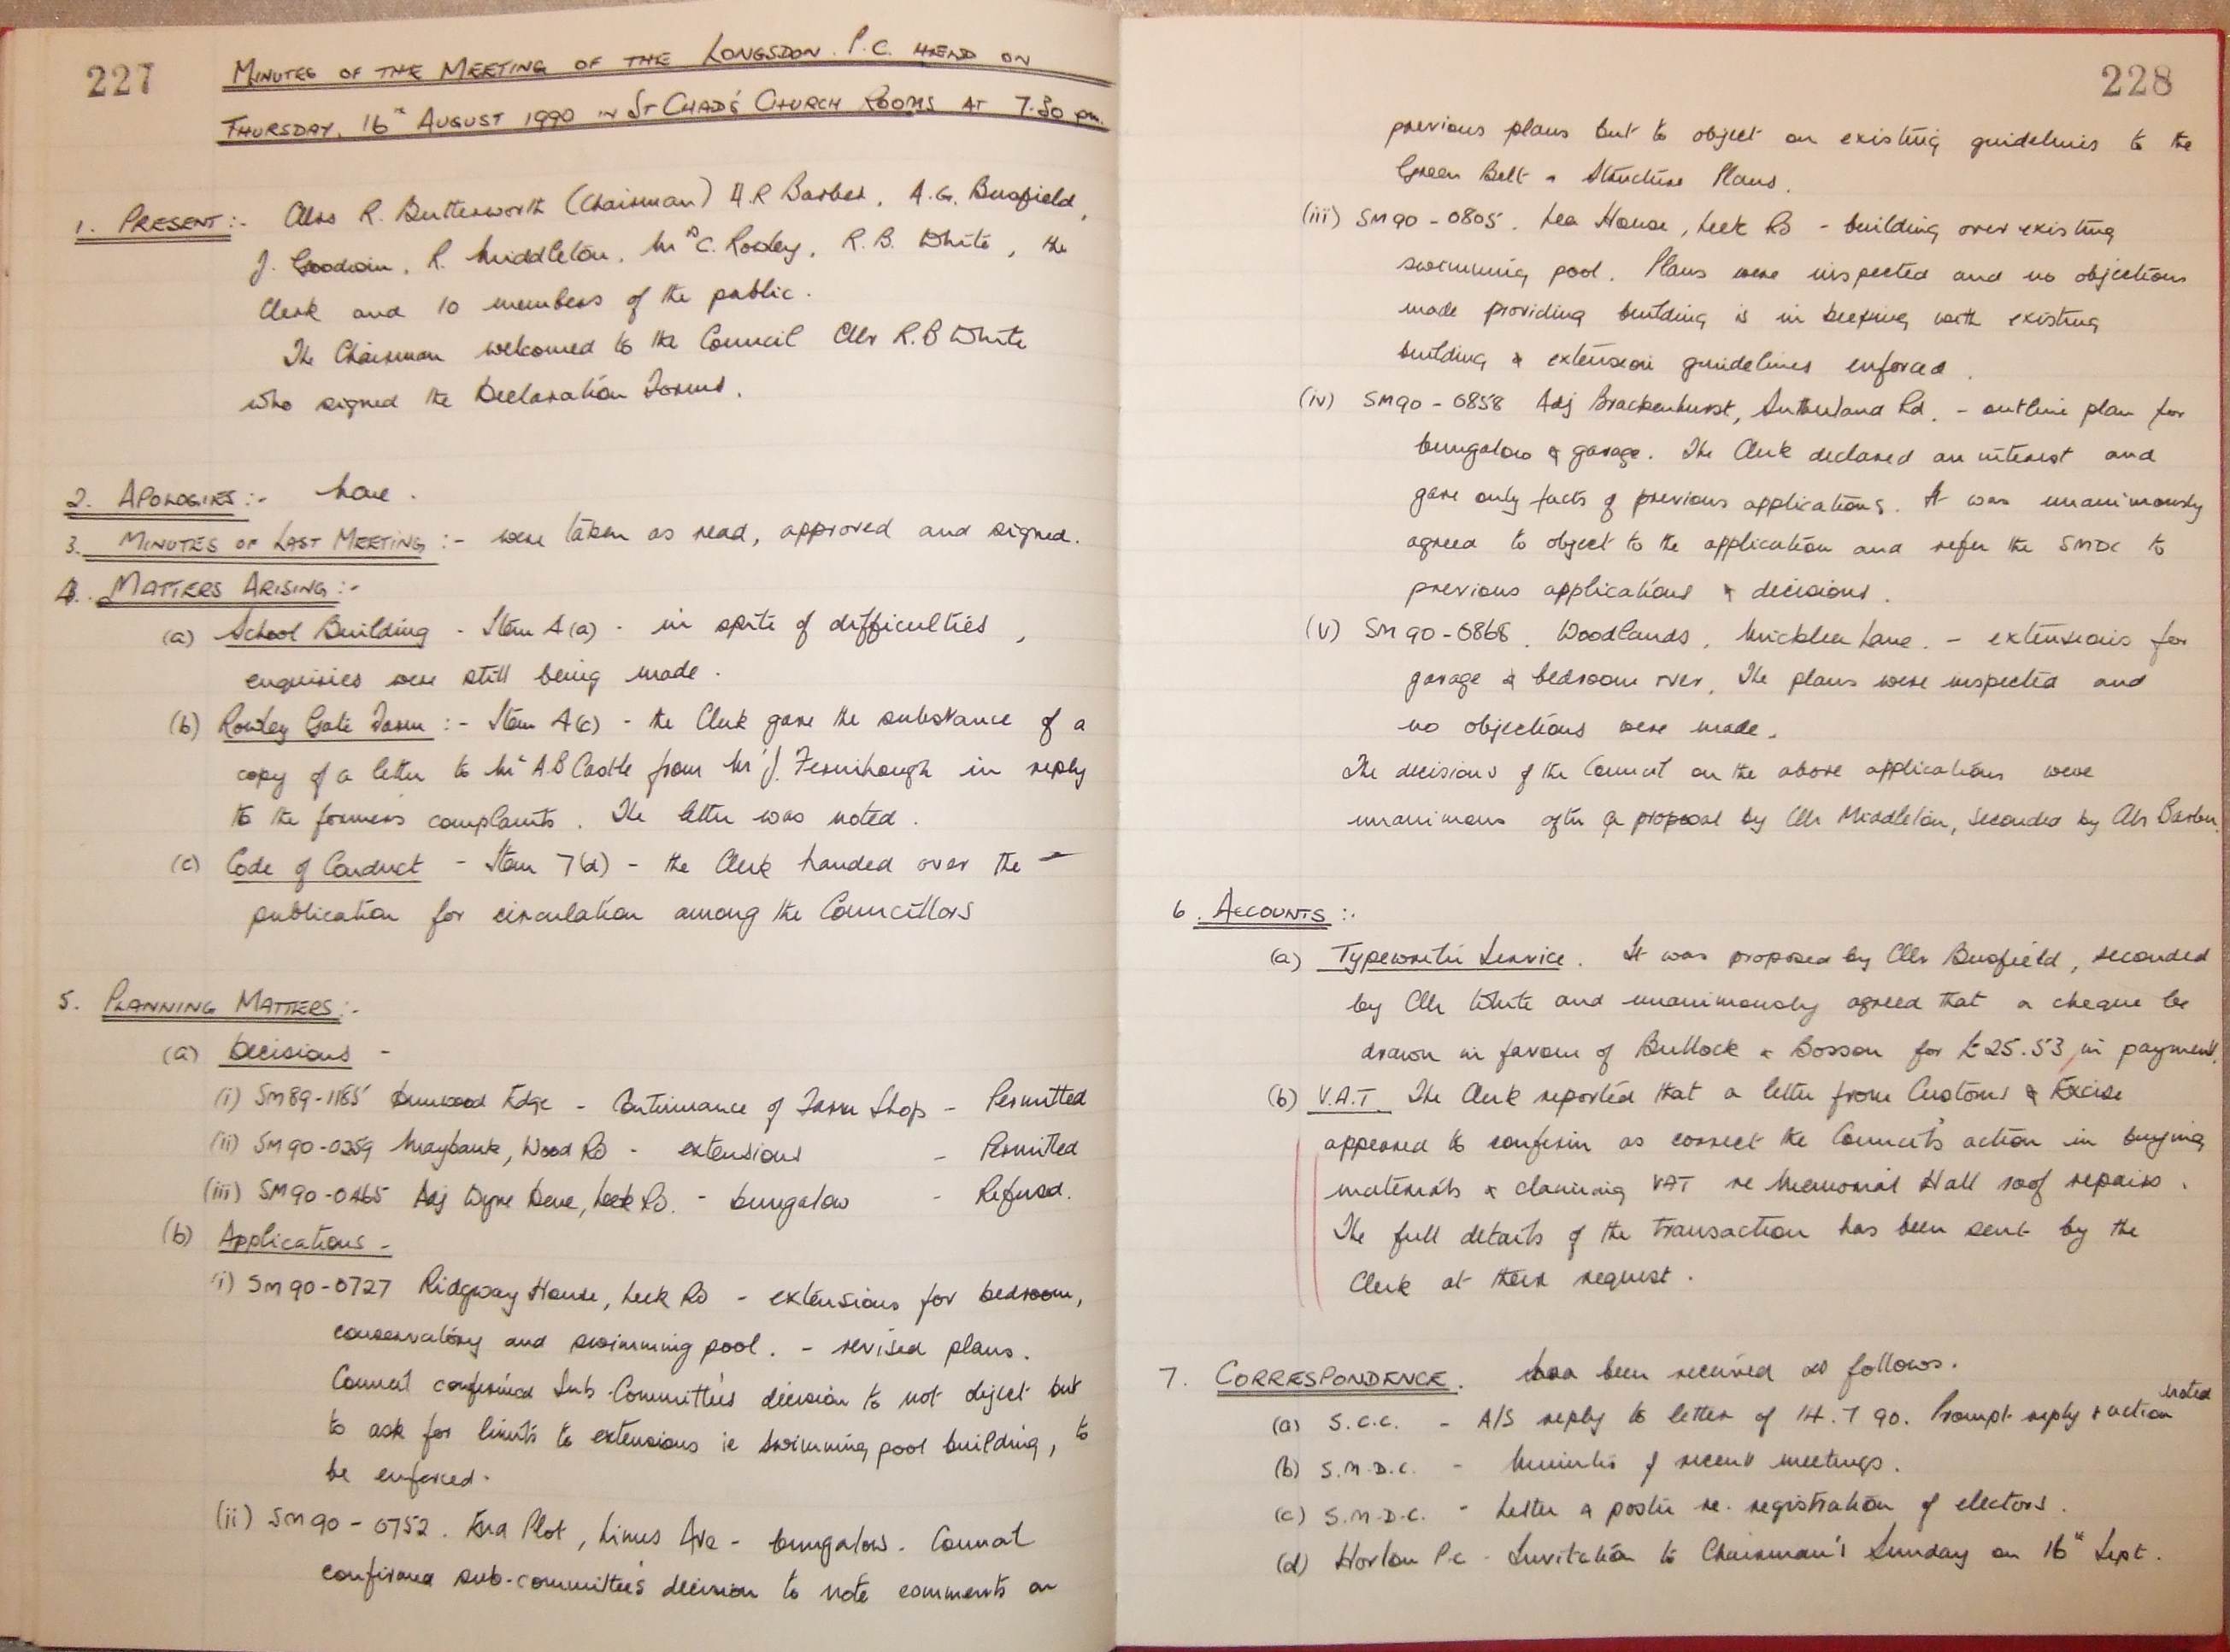 227
MINUTES OF THE MEETING OF THE LONGSDON P.C. HELD ON
THURSDAY, 16th AUGUST 1990 IN ST CHAD'S CHURCH ROOMS AT 7.30 pm.
1. PRESENT:- Cllrs R. Butterworth (Chairman) H.R Barber, A.G. Busfield,
J. Goodwin, R. Middleton, Mrs C. Rowley, R.B. White, the
Clerk and 10 members of the public.
The Chairman welcomed to the Council Cllr R.B White
who signed the Declaration Forms.
2. APOLOGIES:- None.
3. MINUTES OF LAST MEETING:- were taken as read, approved and signed.
4. MATTERS ARISING:-
(a) School Building - Item 4(a) - in spite of difficulties,
enquiries were still being made.
(b) Rowley Gate Farm:- Item 4(c) - the Clerk gave the substance of a
copy of a letter to Mr A B Castle from Mr J. Fernihough in reply
to the former's complaints. The letter was noted.
(c) Code of Conduct - Item 7(d) - the Clerk handed over the -
publication for circulation among the Councillors
5. PLANNING MATTERS:-
(a) Decisions -
(i) SM89-1185 Dunwood Edge - Continuance of Farm Shop - Permitted
(ii) SM90-0259 Maybank, Wood Rd - extensions - Permitted
(iii) SM90-0465 Adj Wyne Dene, Leek Rd. - bungalow - Refused.
(b) Applications -
(i) SM90-0727 Ridgway House, Leek Rd - extensions for bedroom,
conservatory and swimming pool. - revised plans.
Council confirmed Sub-Committee's decision to not object but
to ask for limits to extensions ie swimming pool building, to
be enforced.
(ii) SM90-0752. End Plot, Limes Ave - bungalow. Council
confirmed sub-committee's decision to note comments on
228
previous plans but to object on existing guidelines to the
Green Belt & Structure Plans.
(iii) SM90-0805. Lea House, Leek Rd - building over existing
swimming pool. Plans were inspected and no objections
made providing building is in keeping with existing
building & extension guidelines enforced.
(iv) SM90-0858 Adj Brackenhurst, Sutherland Rd. - outline plan for
bungalow & garage. The Clerk declared an interest and
gave only facts of previous applications. It was unanimously
agreed to object to the application and refer the SMDC to
previous applications & decisions.
(v) SM90-0868. Woodlands, Micklea Lane. - extensions for
garage & bedroom over. The plans were inspected and
no objections were made.
The decisions of the Council on the above applications were
unanimous after a proposal by Cllr Middleton, seconded by Cllr Barber.
6. ACCOUNTS:-
(a) Typewriter Service. It was proposed by Cllr Busfield, seconded
by Cllr White and unanimously agreed that a cheque be
drawn in favour of Bullock & Bosson for £25.53, in payment.
(b) V.A.T. The Clerk reported that a letter from Customs & Excise
appeared to confirm as correct the Council's action in buying
materials & claiming VAT re Memorial Hall roof repairs.
The full details of the transaction has been sent by the
Clerk at their request.
7. CORRESPONDENCE. has been received as follows.
(a) S.C.C. - A/S reply to letter of 14.7.90. Prompt reply & action noted
(b) S.M.D.C. - Minutes of recent meetings.
(c) S.M.D.C. - Letter & poster re. registration of electors.
(d) Horton P.C. - Invitation to Chairman's Sunday on 16th Sept.